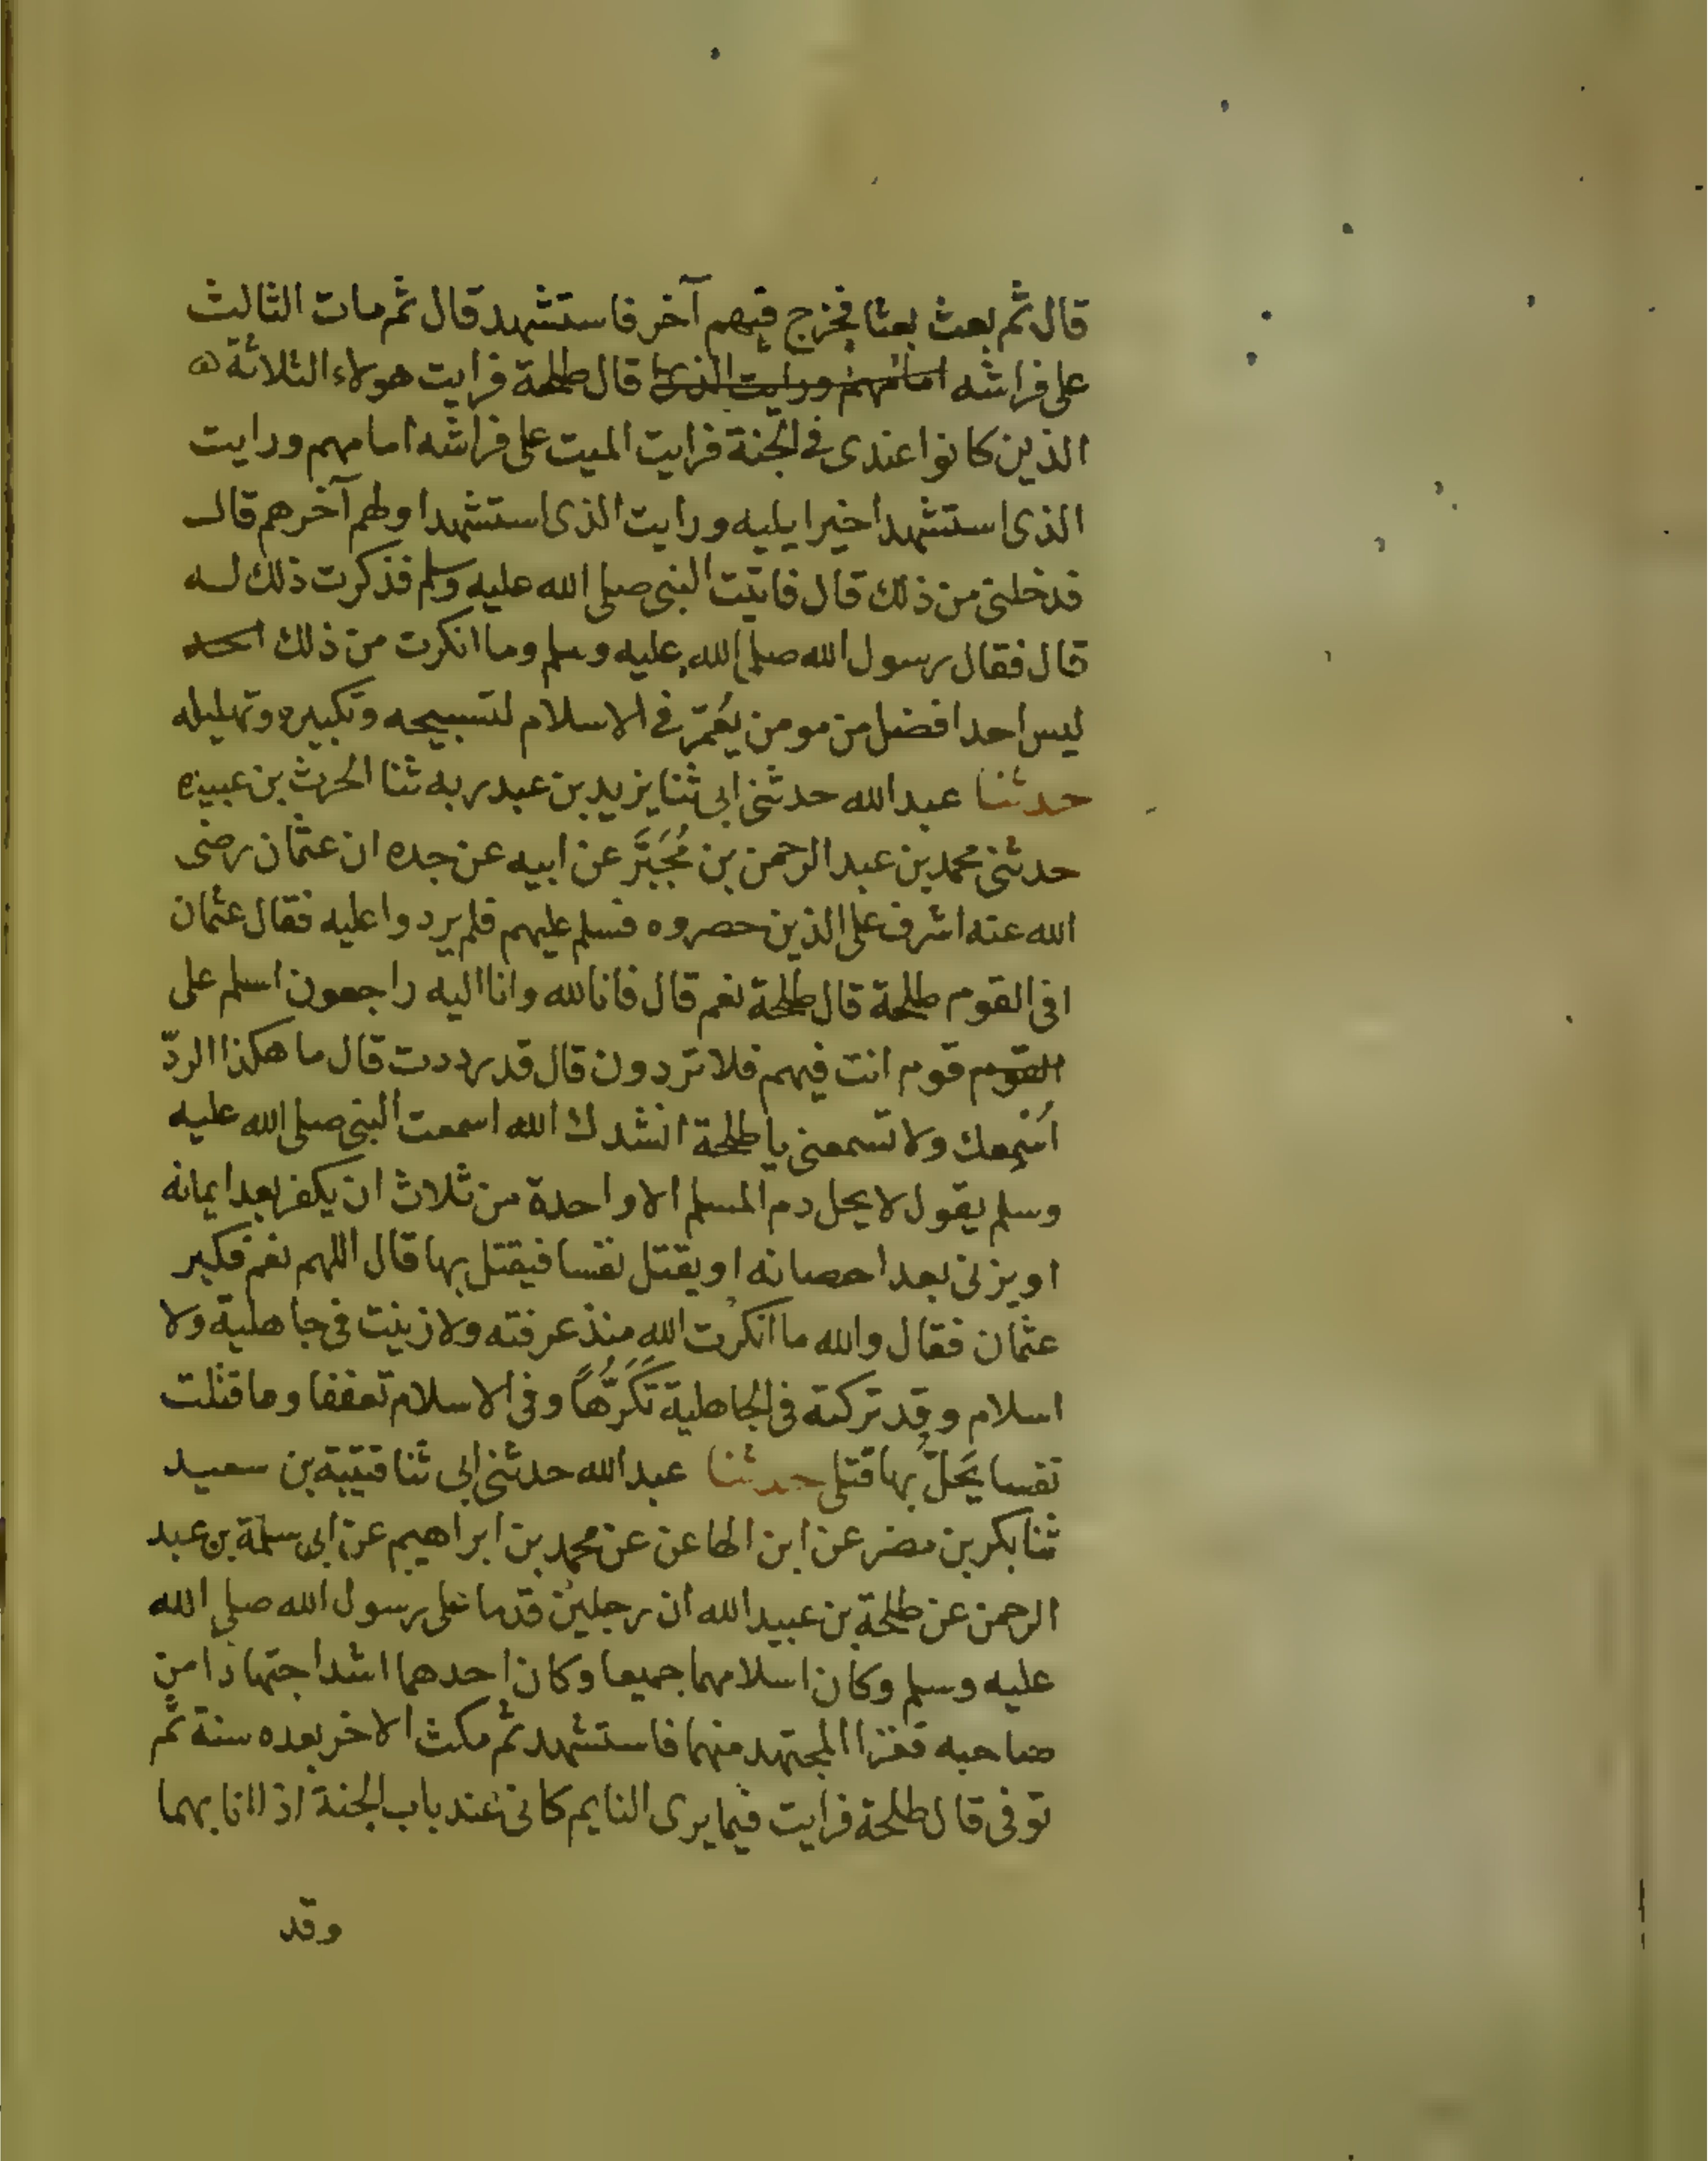 قال ثم بعث بعثا فخرج فيهم آخر فاستشهد قال ثم مات الثالث
على فراشه امامهم ورايت الذى قال طلحة فرايت هولاء الثلاثة
الذين كانوا عندى فى الجنة فرايت الميت على فراشه امامهم ورايت
الذى استشهد اخيرا يليه ورايت الذى استشهد اولهم آخرهم قال
فدخلنى من ذلك قال فاتيت النبى صلى الله عليه وسلم فذكرت ذلك له
قال فقال رسول الله صلى الله عليه وسلم وما انكرت من ذلك
ليس احد افضل من مومن يُعَمَّر فى الاسلام لتسبيحه وتكبيره وتهليله
حدثنا عبد الله حدثنى ابى ثنا يزيد بن عبد ربه ثنا الحرث بن عبيدة
حدثنى محمد بن عبد الرحمن بن مُجَبَّر عن ابيه عن جده ان عثمان رضى
الله عنه اشرف على الذين حصروه فسلم عليهم فلم يردوا عليه فقال عثمان
افى القوم طلحة قال طلحة نعم قال فانا لله وانا اليه راجعون اسلم على
القوم قوم انت فيهم فلا تردون قال قد رددت قال ما هكذا الردّ
اُسْمِعك ولا تسمعنى يا طلحة انشدك الله اسمعت النبى صلى الله عليه
وسلم يقول لا يحل دم المسلم الا واحدة من ثلاث ان يكفر بعد ايمانه
او يزنى بعد احصانه او يقتل نفسا فيقتل بها قال اللهم نعم فكبر
عثمان فقال والله ما انكرت الله منذ عرفته ولا زنيت فى جاهلية ولا
اسلام وقد تركته فى الجاهلية تَكَرُّهاً وفى الاسلام تعففا وما قتلت
نفسا يَحَلُّ بها قتلى حدثنا عبد الله حدثنى ابى ثنا قتيبة بن سعيد
ثنا بكر بن مضر عن ابن الهاعن عن محمد بن ابراهيم عن ابى سلمة بن عبد
الرحمن عن طلحة بن عبيد الله ان رجلين قدما على رسول الله صلى الله
عليه وسلم وكان اسلامهما جميعا وكان احدهما اشد اجتهادا من
صاحبه فغزا المجتهد منهما فاستشهد ثم مكث الاخر بعده سنة ثم
توفى قال طلحة فرايت فيما يرى النايم كانى عند باب الجنة اذا انا بهما
وقد